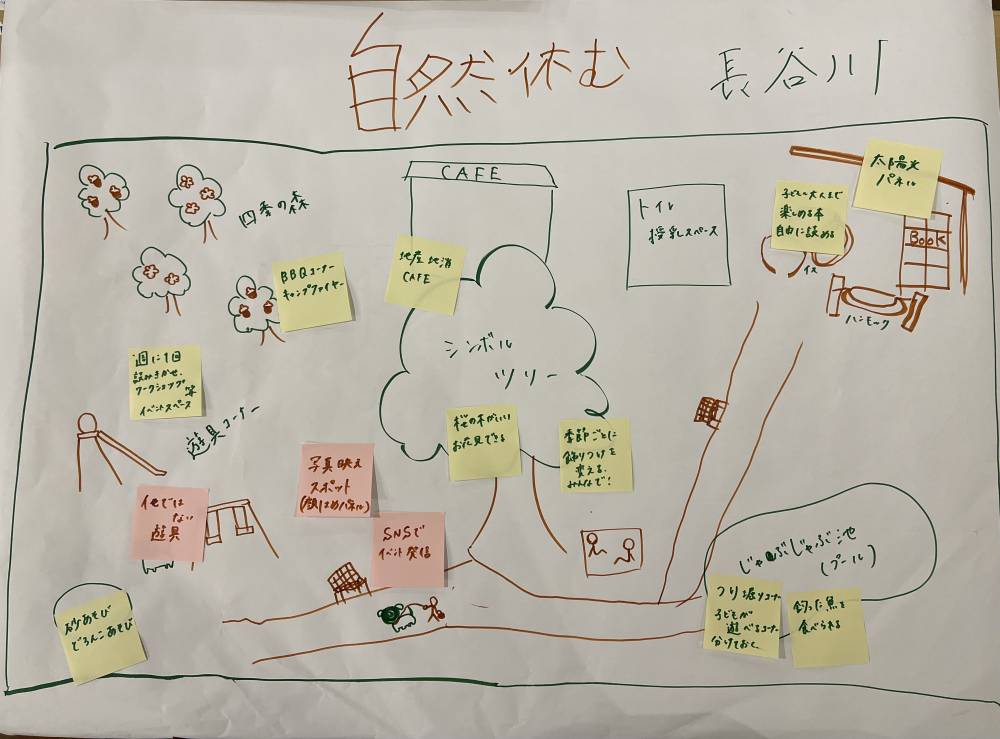 自然休む 長谷川
CAFE
四季の森
BBQコーナー
キャンプファイヤー
地産地消
CAFE
トイレ
授乳スペース
子どもから大人まで
楽しめる本
自由に読める
太陽光
パネル
BOOK
イス
ハンモック
シンボル
ツリー
週に1回
読みきかせ、
ワークショップ等
イベントスペース
遊具コーナー
桜の木がいい
お花見できる
季節ごとに
飾りつけを
変える。
みんなで!
写真映え
スポット
(顔はめパネル)
他では
ない
遊具
SNSで
イベント発信
じゃぶじゃぶ池
(プール)
つり堀りコーナー
子どもが
遊べるコーナー
分けておく。
釣った魚を
食べられる
砂あそび
どろんこあそび